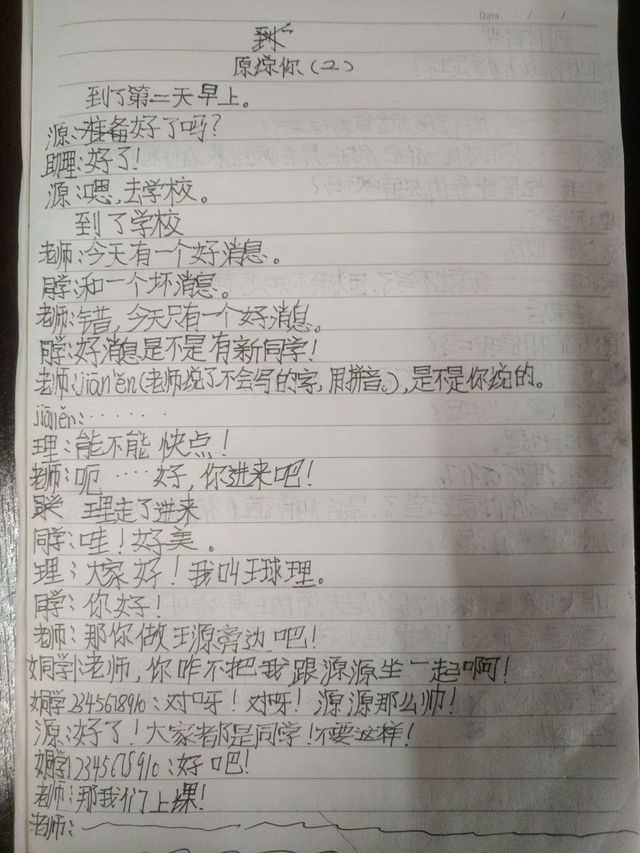 Data / /
原综你(2)
到了第二天早上。
源:准备好了吗?
助理:好了!
源:嗯,去学校。
到了学校
老师:今天有一个好消息。
同学:和一个坏消息。
老师:错,今天只有一个好消息。
同学:好消息是不是有新同学!
老师:jiāněn(老师说了不会写的字,用拼音。),是不是你说的。
jiāněn:······
理:能不能快点!
老师:呃····好,你进来吧!
理走了进来
同学:哇!好美。
理:大家好!我叫王球理。
同学:你好!
老师:那你做王源旁边吧!
女同学1:老师,你咋不把我跟源源坐一起啊!
女同学12345678910:对呀!对呀!源源那么帅!
源:好了!大家都是同学!不要这样!
女同学12345678910:好吧!
老师:那我们上课!
老师: